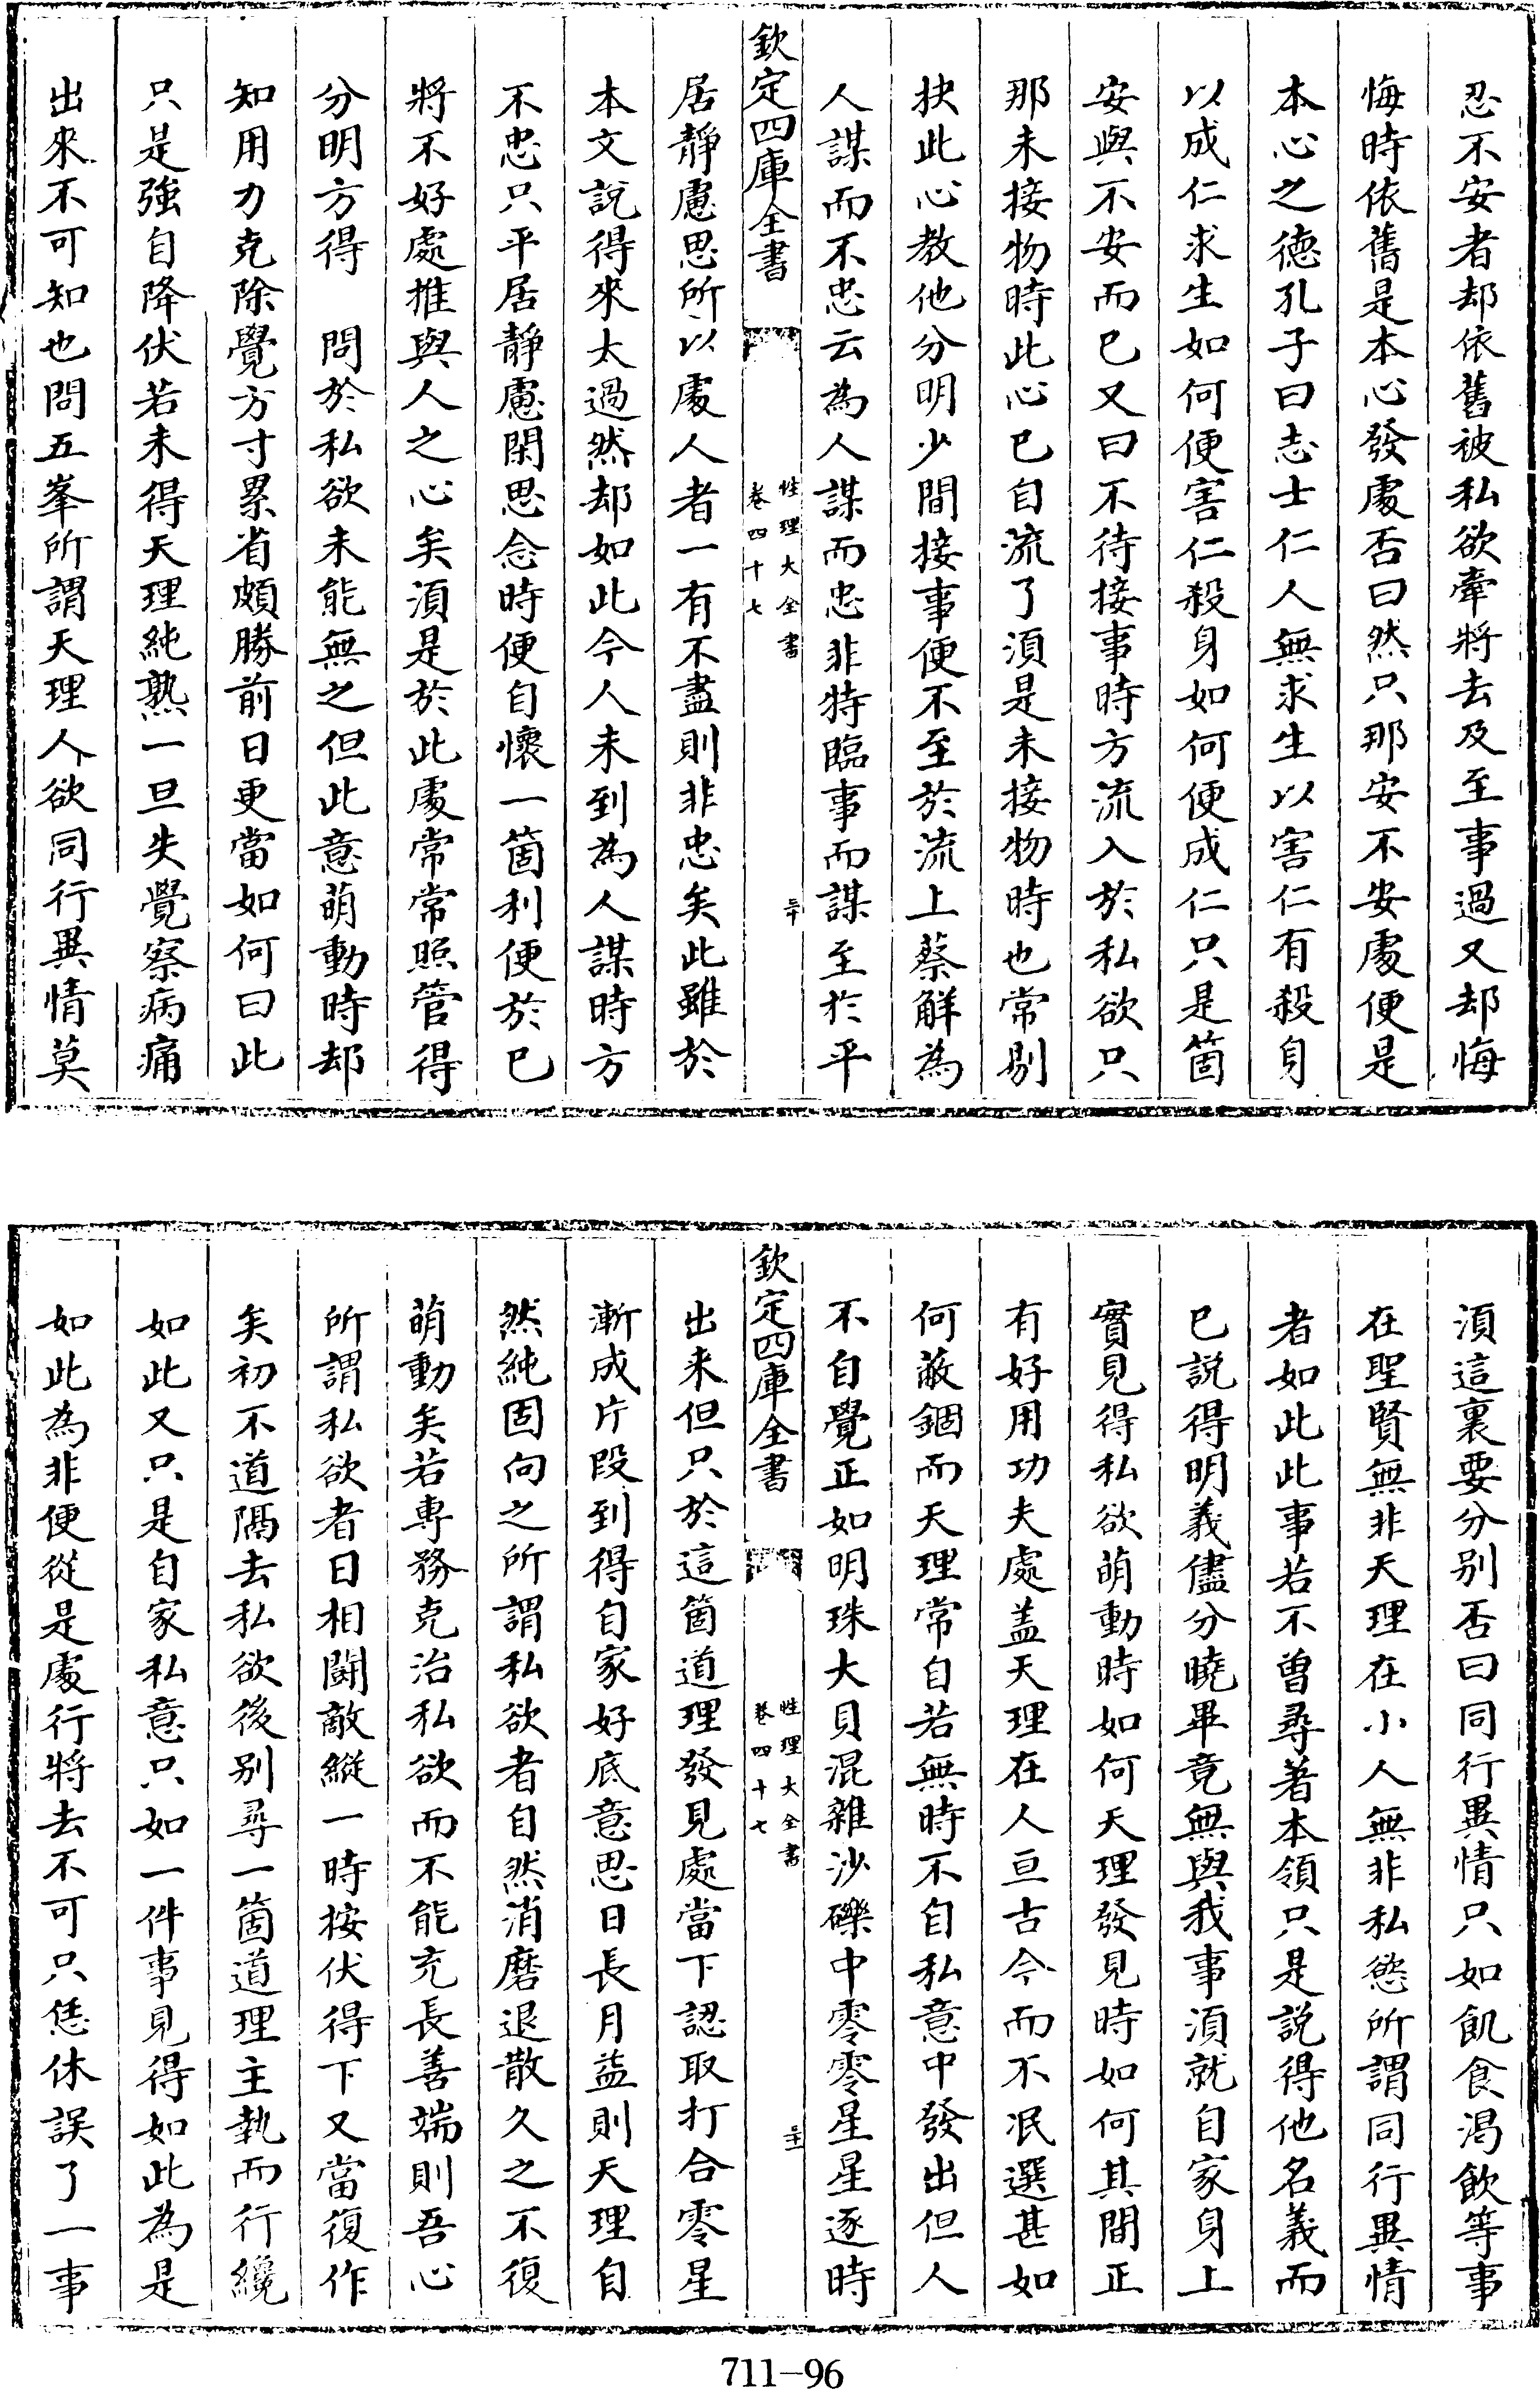 忍不安者却依舊被私欲牽將去及至事過又却悔
悔時依舊是本心發處否曰然只那安不安處便是
本心之德孔子曰志士仁人無求生以害仁有殺身
以成仁求生如何便害仁殺身如何便成仁只是箇
安與不安而已又曰不待接事時方流入於私欲只
那未接物時此心已自流了須是未接物時也常剔
抉此心教他分明少間接事便不至於流上蔡解為
人謀而不忠云為人謀而忠非特臨事而謀至於平
欽定四庫全書
性理大全書
卷四十七
三十
居靜慮思所以處人者一有不盡則非忠矣此雖於
本文說得來太過然却如此今人未到為人謀時方
不忠只平居靜慮閑思念時便自懷一箇利便於己
將不好處推與人之心矣須是於此處常常照管得
分明方得　問於私欲未能無之但此意萌動時却
知用力克除覺方寸累省頗勝前日更當如何曰此
只是強自降伏若未得天理純熟一旦失覺察病痛
出來不可知也問五峯所謂天理人欲同行異情莫
須這裏要分别否曰同行異情只如飢食渴飲等事
在聖賢無非天理在小人無非私慾所謂同行異情
者如此此事若不曾尋著本領只是說得他名義而
已說得明義儘分曉畢竟無與我事須就自家身上
實見得私欲萌動時如何天理發見時如何其間正
有好用功夫處盖天理在人亘古今而不泯選甚如
何蔽錮而天理常自若無時不自私意中發出但人
不自覺正如明珠大貝混雜沙礫中零零星星逐時
欽定四庫全書
性理大全書
卷四十七
三十一
出来但只於這箇道理發見處當下認取打合零星
漸成片段到得自家好底意思日長月益則天理自
然純固向之所謂私欲者自然消磨退散久之不復
萌動矣若專務克治私欲而不能充長善端則吾心
所謂私欲者日相鬭敵縱一時按伏得下又當復作
矣初不道隔去私欲後别尋一箇道理主執而行纔
如此又只是自家私意只如一件事見得如此為是
如此為非便從是處行將去不可只恁休誤了一事
711-96